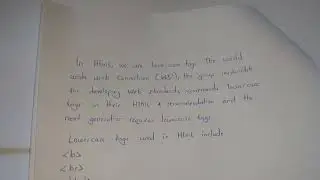 In Html5, we use lowercase tags. The world
wide web Consortium (W3C), the group responsible
for developing web standards, recommends lowercase
tags in their Html 4 recommendation and the
next generation requires lowercase tags
Lowercase tags used in Html include
<b>
<br>